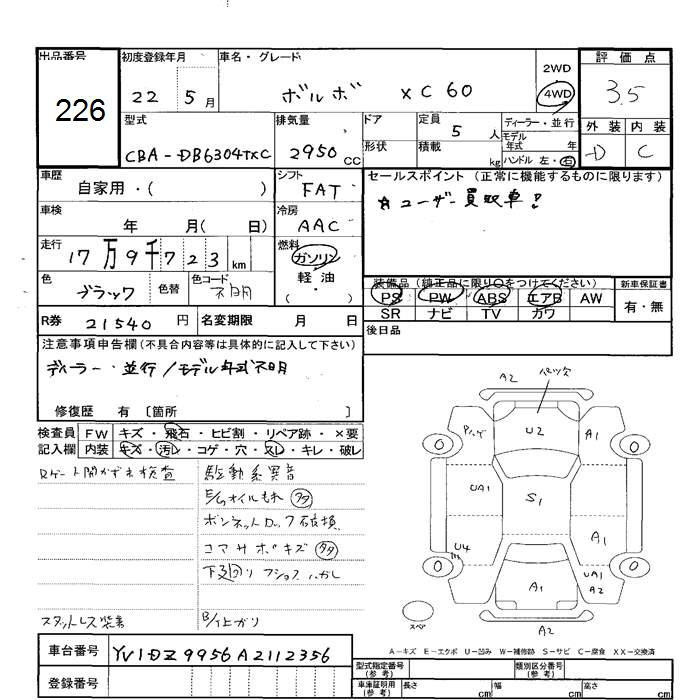 出品番号
226
初度登録年月
22 5月
車名・グレード
ボルボ XC60
2WD
4WD
評価点
3.5
外装 内装
D C
型式
CBA-DB6304TXC
排気量
2950cc
ドア
形状
定員 5人
積載 kg
ディーラー・並行
モデル年式 年
ハンドル 左・右
車歴
自家用・( )
シフト
FAT
セールスポイント (正常に機能するものに限ります)
☆ユーザー買取車!
車検
年 月( 日)
冷房
AAC
走行
17万9千723km
燃料
ガソリン
軽油
( )
色
ブラック
色替
色コード
不明
装備品(純正品に限り○をつけてください)
PS PW ABS エアB AW
SR ナビ TV カワ
新車保証書
有・無
R券 21540円
名変期限 月 日
後日品
注意事項申告欄(不具合内容等は具体的に記入して下さい)
ディーラー・並行/モデル年式不明
修復歴 有〔箇所 〕
検査員記入欄
FW キズ・飛石・ヒビ割・リペア跡・×要
内装 キズ・汚レ・コゲ・穴・スレ・キレ・破レ
Rゲート開かず未検査
駆動系異音
E/Gオイルもれ
ボンネットロック破損
コマサボキズ
下廻り
スタットレス装着
車台番号 YV1DZ9956A2112356
登録番号
A2
U2
A1
UA1
S1
A1
U4
UA1
A2
A1
A2
0
0
0
0
スペア
A-キズ E-エクボ U-凹み W-補修跡 S-サビ C-腐食 XX-交換済
型式指定番号(参考)
類別区分番号(参考)
車庫証明用(参考) 長さ cm 幅 cm 高さ cm